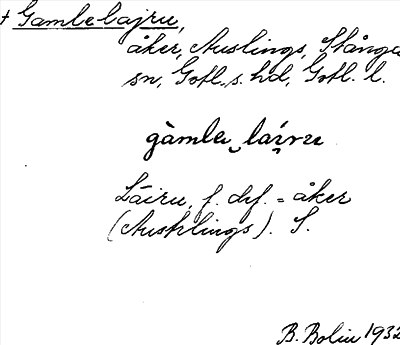 † Gamlelajru,
åker, Auslings, Stånga
sn, Gotl. s. hd, Gotl. l.
gàmlau laírru
Lairu, f. def. = åker
(Ausklings). S.
B. Bolin 1932